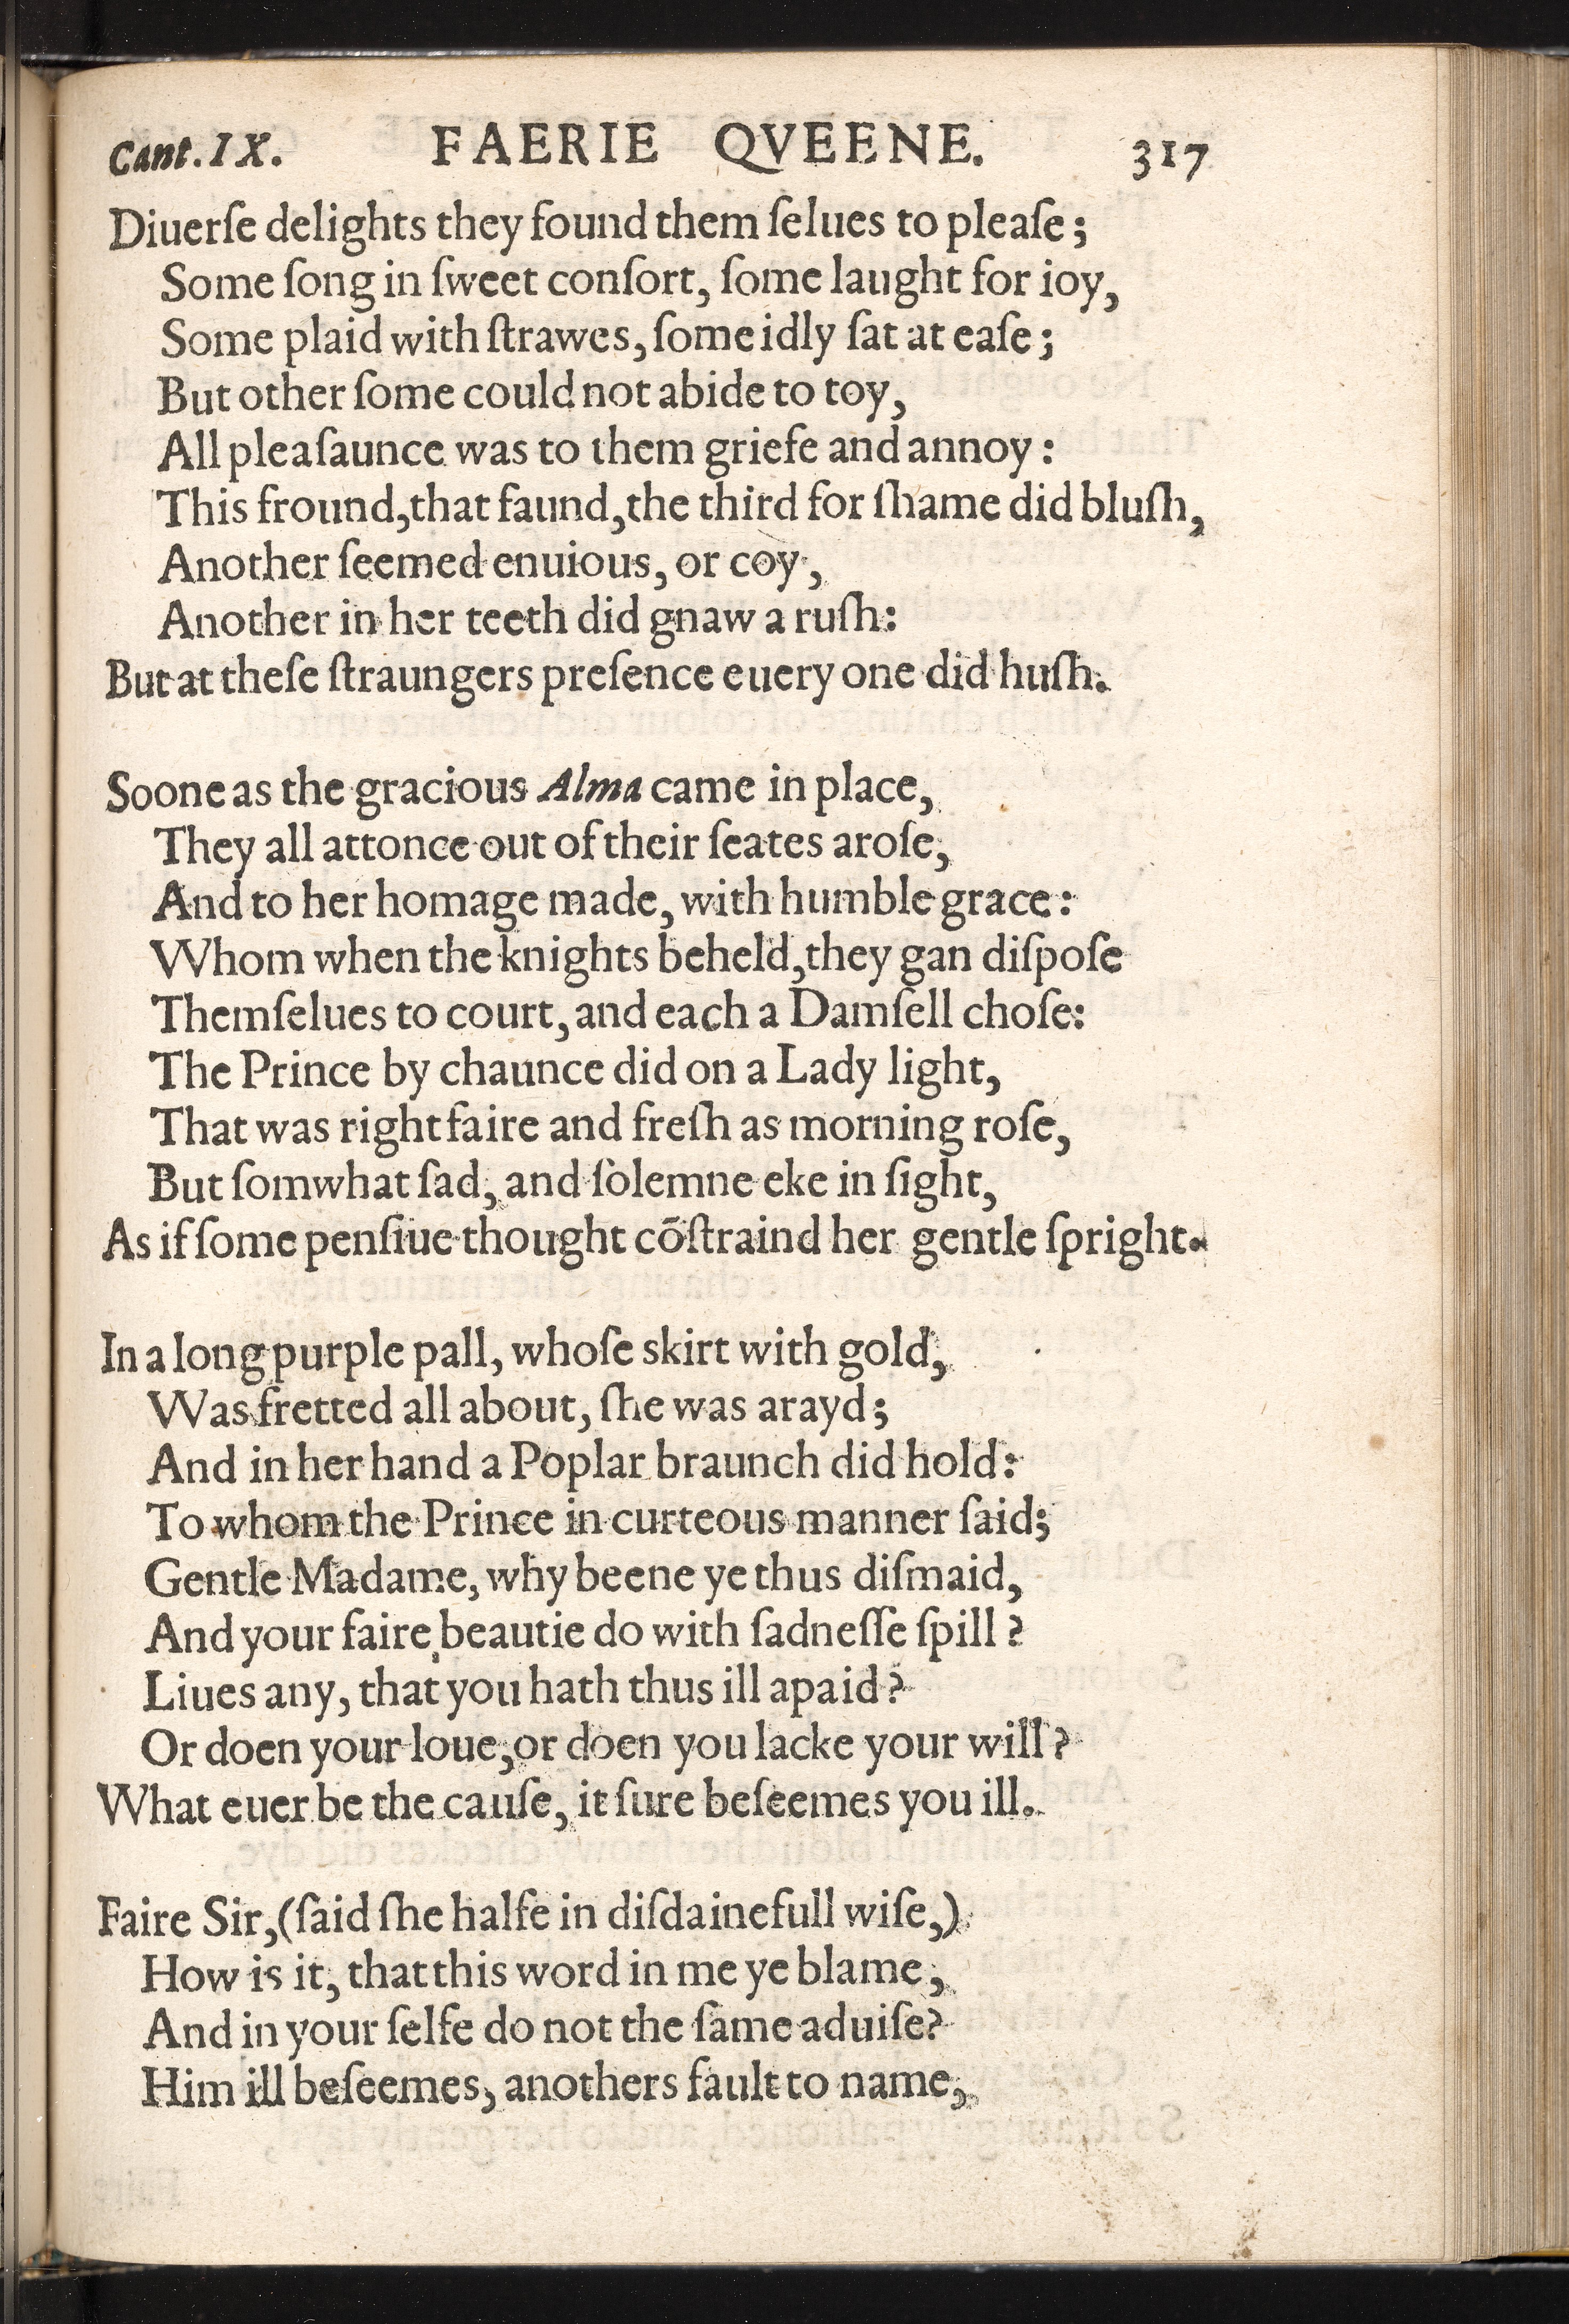 Cant. IX. FAERIE QVEENE. 317
Diuerſe delights they found them ſelues to pleaſe;
Some ſong in ſweet conſort, ſome laught for ioy,
Some plaid with ſtrawes, ſome idly ſat at eaſe;
But other ſome could not abide to toy,
All pleaſaunce was to them griefe and annoy:
This fround, that faund, the third for ſhame did bluſh,
Another ſeemed enuious, or coy,
Another in her teeth did gnaw a ruſh:
But at theſe ſtraungers preſence euery one did huſh.
Soone as the gracious Alma came in place,
They all attonce out of their ſeates aroſe,
And to her homage made, with humble grace:
Whom when the knights beheld, they gan diſpoſe
Themſelues to court, and each a Damſell choſe:
The Prince by chaunce did on a Lady light,
That was right faire and freſh as morning roſe,
But ſomwhat ſad, and ſolemne eke in ſight,
As if ſome penſiue thought cõſtraind her gentle ſpright.
In a long purple pall, whoſe skirt with gold,
Was fretted all about, ſhe was arayd;
And in her hand a Poplar braunch did hold:
To whom the Prince in curteous manner ſaid;
Gentle Madame, why beene ye thus diſmaid,
And your faire beautie do with ſadneſſe ſpill?
Liues any, that you hath thus ill apaid?
Or doen your loue, or doen you lacke your will?
What euer be the cauſe, it ſure beſeemes you ill.
Faire Sir, (ſaid ſhe halfe in diſdainefull wiſe,)
How is it, that this word in me ye blame,
And in your ſelfe do not the ſame aduiſe?
Him ill beſeemes, anothers fault to name,